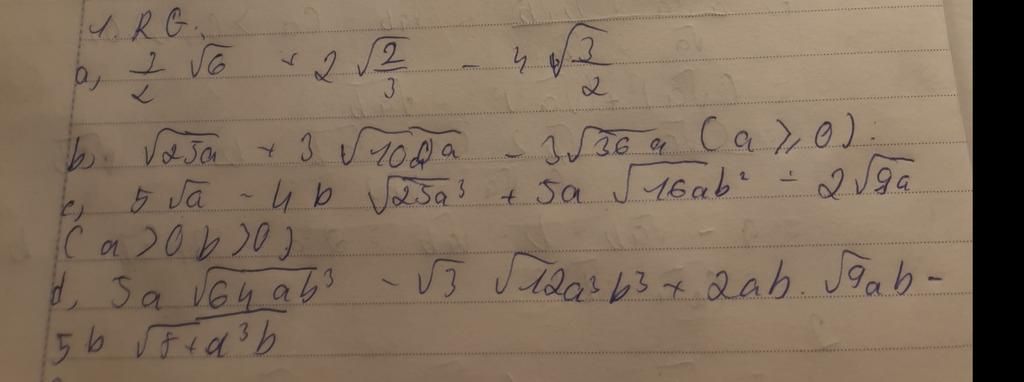 1. RG:
a, 3/2 √6 + 2 √2/3 - 4 √3/2
b, √25a + 3 √100a - 3√36a (a ≥ 0).
c, 5√a - 4b √25a³ + 5a √16ab² - 2√9a
(a > 0 b > 0)
d, 5a √64ab³ - √3 √12a³b³ + 2ab. √9ab -
5b √81a³b